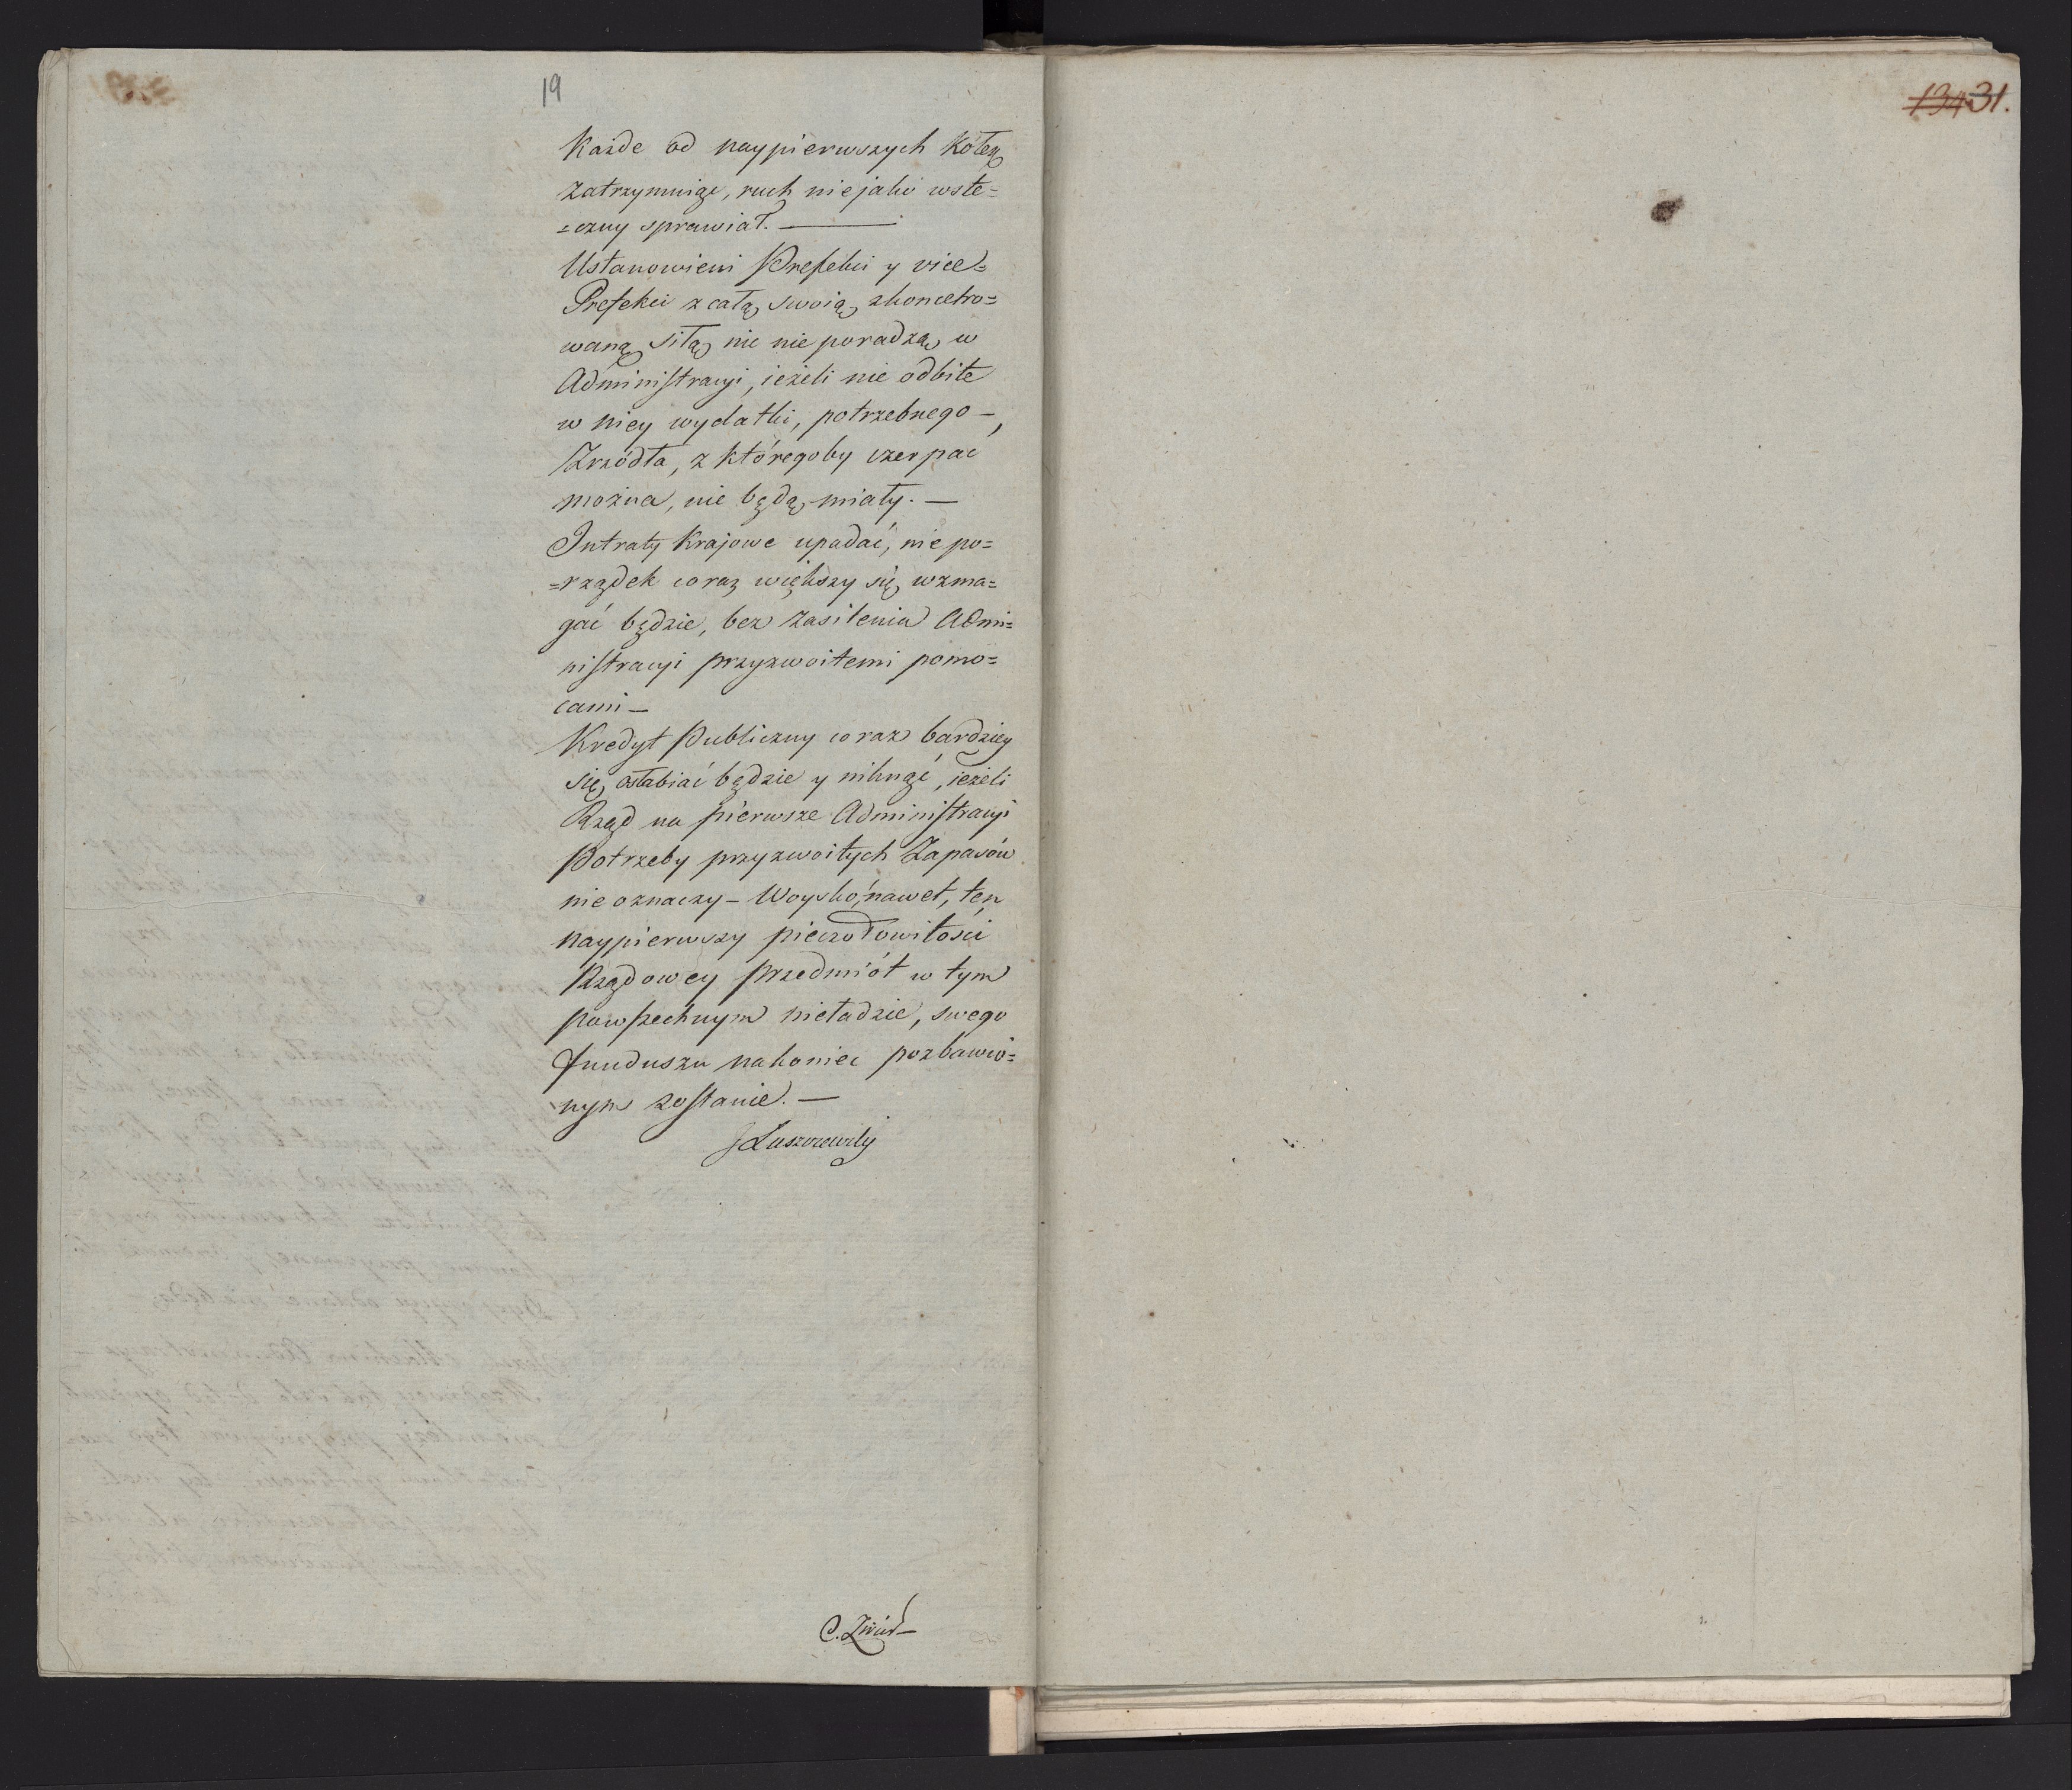 19
Każde od naypierwszych Kółek
zatrzymuiąc, ruch niejako wste=
=czny sprawiał. —
Ustanowieni Prefekci y vice=
Prefekci z całą swoią skoncetro=
waną siłą nic nie poradzą w
Administracyi, ieżeli nie odbite
w niey wydatki, potrzebnego —,
Zrzódła, z któregoby czerpać
można, nie będą miały. —
Intraty Krajowe upadać, nie po=
=rządek coraz większy się wzma=
gać będzie, bez zasilenia Admi=
nistracyi przyzwoitemi pomo=
cami —
Kredyt Publiczny coraz bardziey
się osłabiać będzie y niknąć, ieżeli
Rząd na pierwsze Administracyi
Potrzeby przyzwoitych Zapasów
nie oznaczy — Woysko, nawet, ten
naypierwszy pieczołowitości
Rządowey przedmiót w tym
powszechnym nieładzie, swego
funduszu nakoniec pozbawio=
nym zostanie. —
JŁuszczewski
134 31.